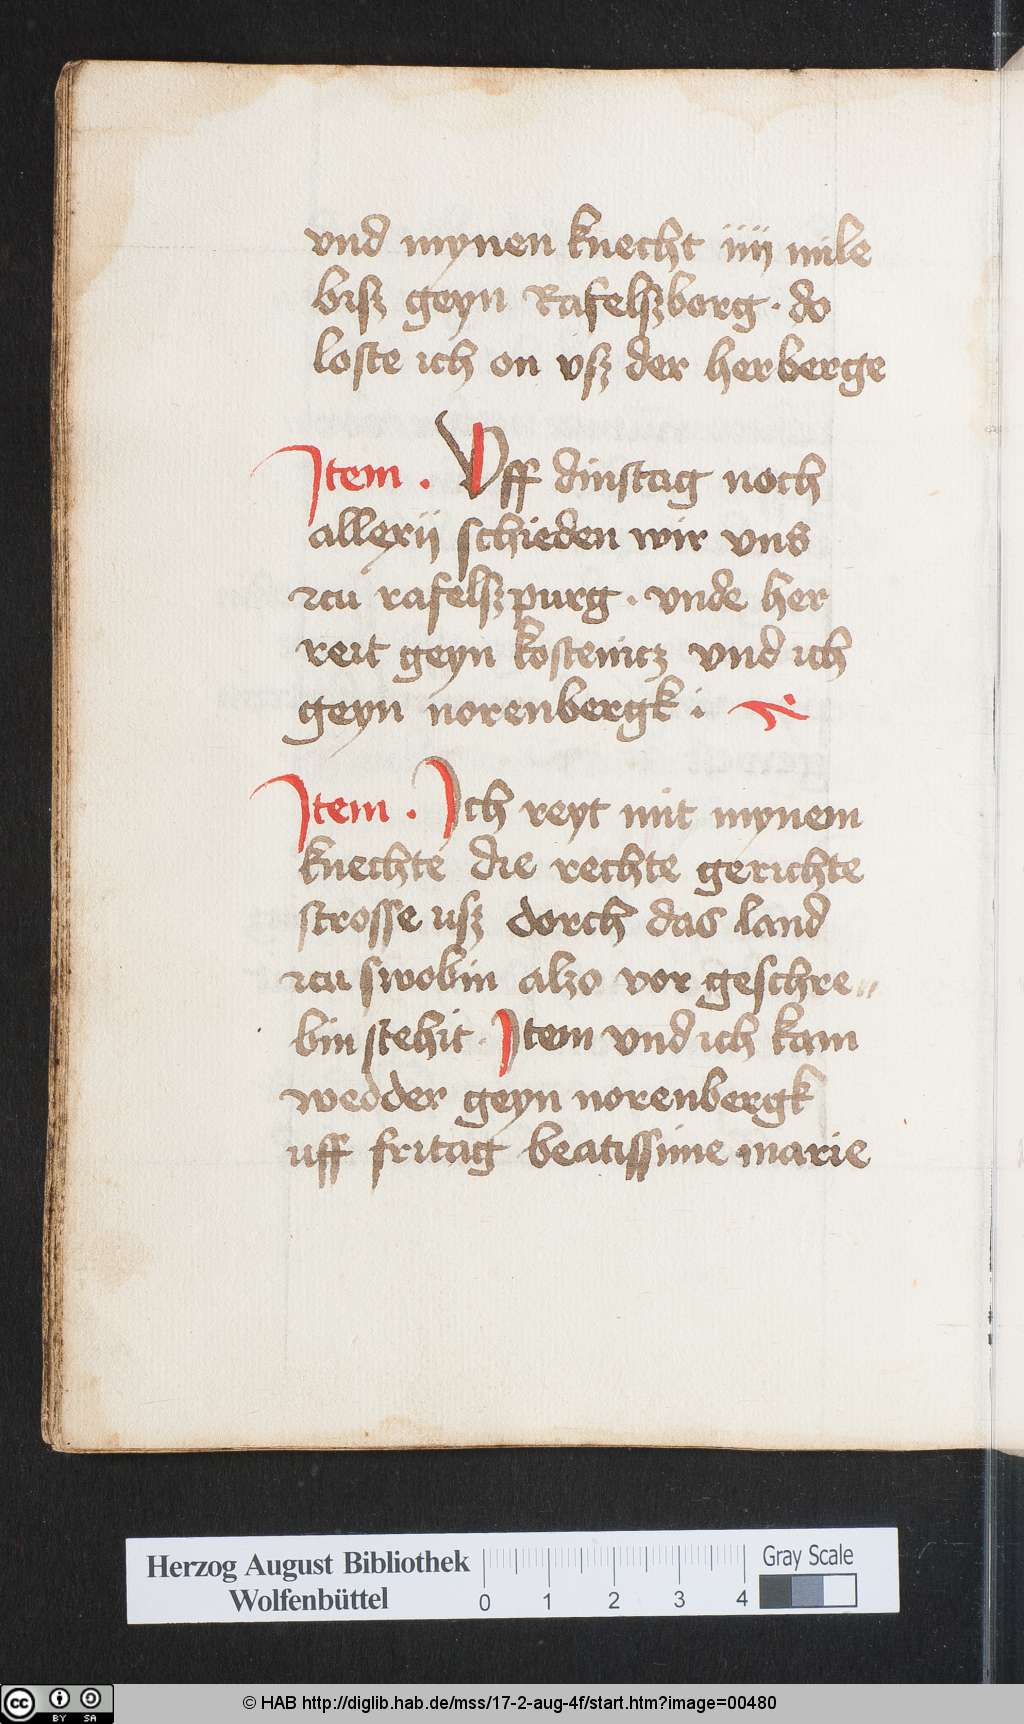 vnd mynen knecht iiij mile
bisz geyn Rafelszborg · do
loste ich on vsz der herberge
Item · Vff dinstag noch
allexij schieden wir vns
zcu rafelszpurg · vnde her
reit geyn kostenitz vnd ich
geyn norenbergk :
Item · Ich reyt mit mynem
knechte die rechte gerichte
strosse usz dorch das land
zcu swobin alzo vor geschre〃
bin stehit · Item vnd ich kam
wedder geyn norenbergk
uff fritag beatissime marie
Herzog August Bibliothek
Wolfenbüttel
0 1 2 3 4
Gray Scale
cc BY SA
© HAB http://diglib.hab.de/mss/17-2-aug-4f/start.htm?image=00480